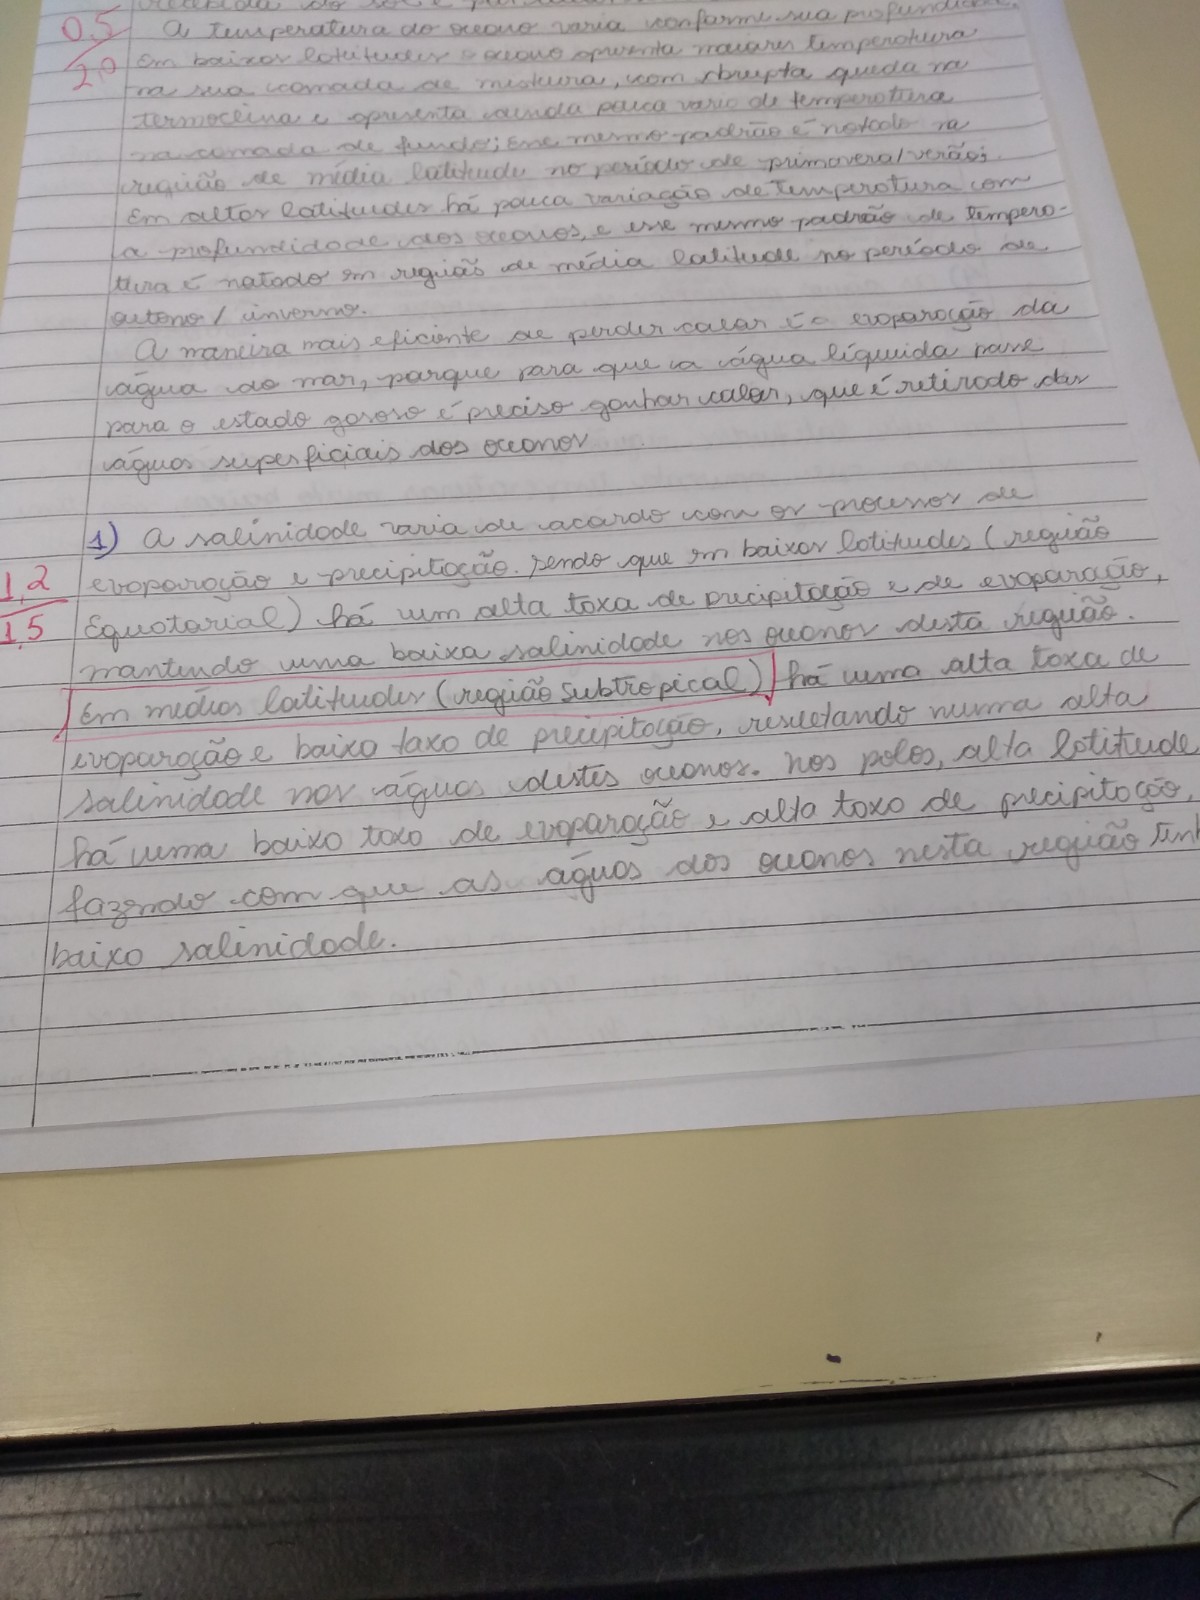 recebida do sol e
0,5
2,0
A temperatura do oceano varia conforme sua profundidade.
Em baixas latitudes o oceano apresenta maiores temperatura
na sua camada de mistura, com abrupta queda na
termoclina e apresenta ainda pouca vario de temperatura
na camada de fundo; Esse mesmo padrão é notado na
região de média latitude no período de primavera/verão;
Em altas latitudes há pouca variação de temperatura com
a profundidade dos oceanos, e esse mesmo padrão de tempera-
tura é notado em região de média latitude no período de
outono / inverno.
A maneira mais eficiente de perder calor é a evaporação da
água do mar, porque para que a água líquida passe
para o estado gasoso é preciso ganhar calor, que é retirado das
águas superficiais dos oceanos
1) A salinidade varia de acordo com os processos de
1,2
1,5
evaporação e precipitação. sendo que em baixas latitudes (região
Equatorial) há um alta taxa de precipitação e de evaporação,
mantendo uma baixa salinidade nos oceanos desta região.
Em médias latitudes (região subtropical) há uma alta taxa de
evaporação e baixa taxa de precipitação, resultando numa alta
salinidade nas águas destes oceanos. Nos polos, alta latitude
há uma baixa taxa de evaporação e alta taxa de precipitação,
fazendo com que as águas dos oceanos nesta região
baixa salinidade.